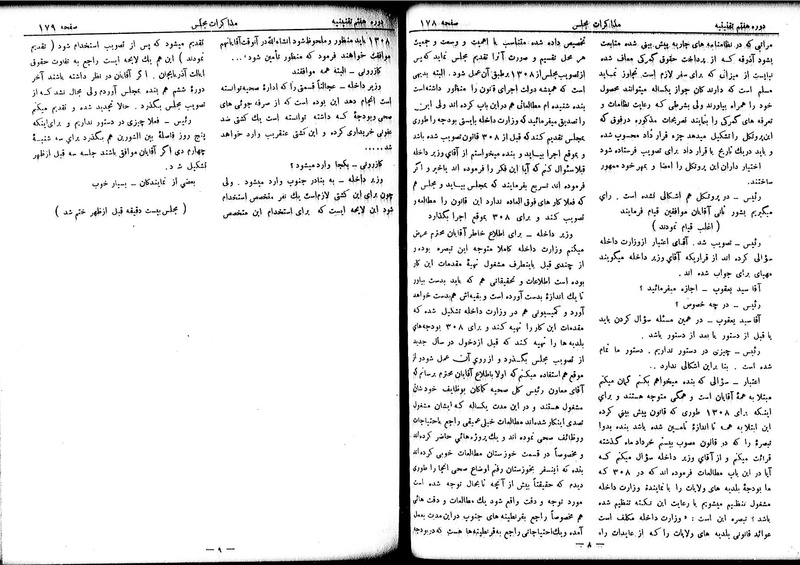 دوره هفتم تقنینیه
مذاکرات مجلس
صفحه ۱۷۸
مراتبی که در نظامنامه های جاریه پیش بینی شده متابعت
بشود آذوقه که از پرداخت گمرکی معاف شده
نیاست از میزانی که برای سفر لازم است تجاوز نماید
مسلم است که دارندگان جواز یکساله میتوانند محصول
خود را همراه بیاورند ولی بشرطی که رعایت نظامات و
تعرفه های گمرکی را بنمایند تصریحات مذکوره درفوق که
این پروتکل را تشکیل میدهد جزء قرار داد محسوب شده
و باید دریك تاریخ با قرار داد برای تصویب فرستاده شود
اختیار داران این پروتکل را امضا و بمهر خود ممهور
ساختند.
رئیس ــ در پروتکل هم اشکالی نشده است . رای
میگیریم بشور ثانی آقایان موافقین قیام فرمایند
( اغلب قیام نمودند )
رئیس ــ تصویب شد . آقای اعتبار ازوزارت داخله
سؤالی کرده اند از قراریکه آقای وزیر داخله میگویند
مهیای برای جواب شده اند .
آقا سید یعقوب ــ اجازه میفرمائید ؟
رئیس ــ در چه خصوص ؟
آقا سید یعقوب ــ در همین مسئله سؤال کردن باید
یا قبل از دستور یا بعد از دستور باشد .
رئیس ــ چیزی در دستور نداریم . دستور ما تمام
شده است . بنا براین اشکالی ندارد ..
اعتبار ــ سؤالی که بنده میخواهم بکنم گمان میکنم
مبتلا به همۀ آقایان است و همگی متوجه هستند و برای
اینکه برای ۱۳۰۸ طوری که قانون پیش بینی کرده
این ابتلا به همه تا اندازۀ تامین شده باشد بنده بدوا
تبصرۀ را که در قانون مصوب بیستم خرداد ماه گذشته
قرائت میکنم و از آقای وزیر داخله سؤال میکنم که
آیا در این باب مطالعات فرموده اند که در ۳۰۸ که
ما بودجۀ بلدیه های ولایات را با نمایندۀ وزارت داخله
مشغول تنظیم میشویم با رعایت این نکته تنظیم شده
باشد ؟ تبصره این است : « وزارت داخله مکلف است
عوائد قانونی بلدیه های ولایات را که از عایدات راه
تخصیص داده شده متناسب با اهمیت و وسعت و جمعیت
هر محل تقسیم و صورت آنرا تقدیم مجلس نماید که پس
ازتصویب مجلس از ۱۳۰۸ برطبق آن عمل شود . البته بدیهی
است که همیشه دولت اجرای قانون را منظور داشته است
بنده شنیده ام مطالعاتی هم در این باب کرده اند ولی این
را تصدیق میفرمائید که وزارت داخله بایستی بودجه را طوری
بمجلس تقدیم کند که قبل از ۳۰۸ قانون تصویب شده باشد
و بموقع اجرا بیاید و بنده میخواستم از آقای وزیر داخله
قبلا سئوال کنم که آیا این فکر را فرموده اند یا خیر و اگر
فرموده اند تسریع بفرمایند که بمجلس بیاید و مجلس هم
که فعلا کار های فوق العاده ندارد این قانون را مطالعه و
تصویب کند و برای ۳۰۸ بموقع اجرا بگذارد
وزیر داخله ــ برای اطلاع خاطر آقایان محترم عرض
میکنم وزارت داخله کاملا متوجه این تبصره بوده و
از چندی قبل باینطرف مشغول تهیۀ مقدمات این کار
بوده است اطلاعات و تحقیقاتی هم که باید بدست بیاورد
تا یك اندازۀ بدست آورده است و بقیه اش هم بدست خواهد
آورد و کمیسیونی هم در وزارت داخله تشکیل شده که
مقدمات این کار را تهیه کند و برای ۳۰۸ بودجه های
بلدیه ها را تهیه کنند که قبل ازدخول در سال جدید
از تصویب مجلس بگذرد و از روی آن عمل شود در این
موقع هم استفاده میکنم که اولا باطلاع آقایان محترم برسانم که
آقای معاون رئیس کل صحیه کماکان بوظایف خودشان
مشغول هستند و در این مدت یکساله که ایشان مشغول
تصدی اینکار شده اند مطالعات خیلی عمیقی راجع باحتیاجات
ووظائف صحی نموده اند و یك پروژه هائی حاضر کرده اند
و مخصوصا در قسمت خوزستان مطالعات خوبی کرده اند
بنده که اینسفر بخوزستان رفتم اوضاع صحی آنجا را طوری
دیدم که حقیقتاً بیش از آنچه تابحال توجه شده است
مورد توجه و دقت واقع شود یك مطالعات و دقت هائی
هم مخصوصا راجع بقرنطینه های جنوب در این مدت بعمل
آمده ویك احتیاجاتی راجع به قرنطینه ها هست که دربودجه
ــ ۸ ــ
دوره هفتم تقنینیه
مذاکرات مجلس
صفحه ۱۷۹
۱۳۰۸ باید منظور و ملحوظ شود انشاءالله در آنوقت آقایان هم
موافقت خواهند فرمود که منظور تأمین شود....
کازرونی . البته همه موافقند
وزیر داخله ــ عجالتاً قسمتی را که ادارۀ صحیه توانسته
است انجام دهد این بوده است که از صرفه جوئی های
صحی وبودجۀ که داشته توانسته است یك کشتی ضد
عفونی خریداری کرده و این کشتی عنقریب وارد خواهد
شد....
کازرونی ــ بکجا وارد میشود ؟
وزیر داخله ــ به بنادر جنوب وارد میشود . ولی
چون برای این کشتی لازم است یك نفر متخصص استخدام
شود این لایحه ایست که برای استخدام این متخصص
تقدیم میشود که پس از تصویب استخدام شود ( تقدیم
نمودند ) این هم یك لایحه ایست راجع به تفاوت حقوقی
ایالت آذربایجان . اگر آقایان در نظر داشته باشند آخر
دورۀ ششم هم بنده بمجلس آوردم ولی مجال نشد که از
تصویب مجلس بگذرد . حالا تجدید شده و تقدیم میکنم
رئیس ــ فعلا چیزی در دستور نداریم و برای اینکه
پنج روز فاصلۀ بین الشورین هم بگذرد برای سه شنبۀ
چهارم دی اگر آقایان موافق باشند جلسه سه قبل ازظهر
تشکیل شود .
بعضی از نمایندگان ــ بسیار خوب
( مجلس بیست دقیقه قبل ازظهر ختم شد )
ــ ۹ ــ